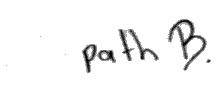 path B.